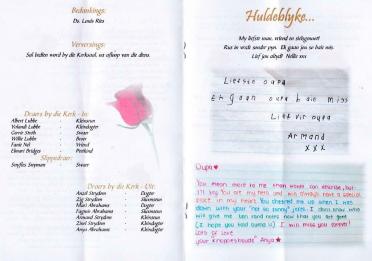 Bedankings:
Ds. Louis Ras
Verversings:
Sal bedien word by die Kerksaal, na afloop van die diens.
Draers by die Kerk - In:
Albert Lubbe Kleinseun
Yolandi Lubbe Kleindogter
Gerrie Steth Swaer
Willie Lubbe Broer
Fanie Nel Vriend
Elmari Bridges Peetkind
Slippedraer:
Snyffies Snyman Swaer
Draers by die Kerk - Uit:
Anzel Strydom Dogter
Zig Strydom Skoonseun
Mari Abrahams Dogter
Fagmie Abrahams Skoonseun
Armand Strydom Kleinseun
Zinel Strydom Kleindogter
Anya Abrahams Kleindogter
Huldeblyke...
My liefste man, vriend en sielsgenoot!
Rus in vrede sonder pyn. Ek gaan jou so baie mis.
Lief jou altyd! Nellie xxx
Liefste oupa
Ek gaan oupa baie miss
Lief vir oupa
Armand
xxx
Oupa♥
You mean more to me than words can describe, but
I'll say You are my hero and will always have a special
place in my heart. You cheered me up when I was
down with your "not so funny" jokes. I don't know who
will give me ten rand notes now that you are gone
(I hope you had some U) I will miss you forever!
Lots of love
your "knoppieshoude" Anya♥